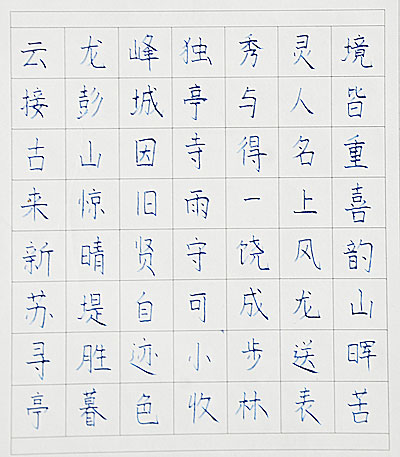 云龙峰独秀灵境
接彭城亭与人皆
古山因寺得名重
来惊旧雨一上喜
新晴贤守饶风韵
苏堤自可成龙山
寻胜迹小步送晖
亭暮色收林表苦